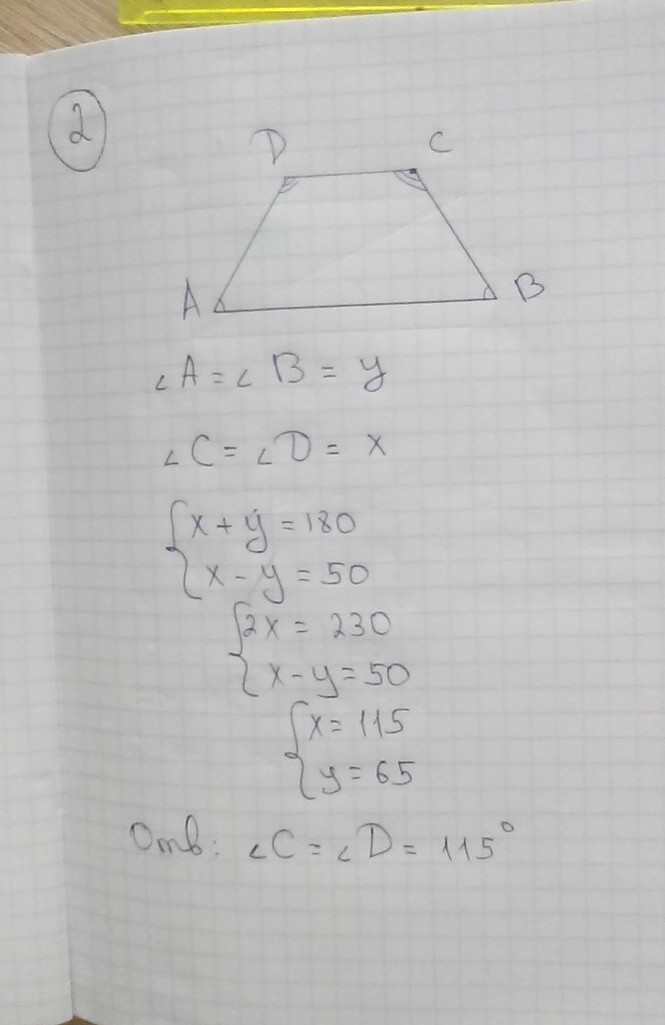 2
D C
A B
∠A = ∠B = y
∠C = ∠D = x
x + y = 180
x - y = 50
2x = 230
x - y = 50
x = 115
y = 65
Отв: ∠C = ∠D = 115°